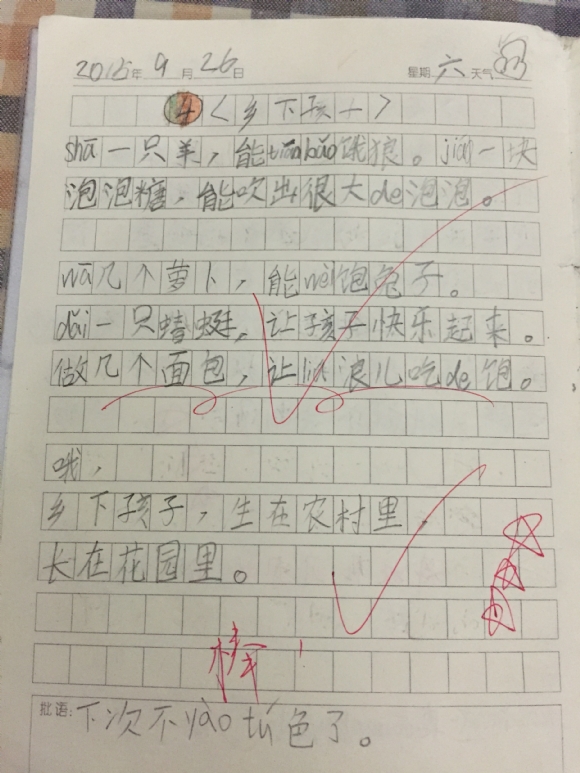 2015年9月26日 星期六天气
4《乡下孩子》
shā一只羊，能tiánbǎo饿狼。jiáo一块
泡泡糖，能吹出很大de泡泡。
wā几个萝卜，能wèi饱兔子。
dǎi一只蜻蜓，让孩子快乐起来。
做几个面包，让liú浪儿吃de饱。
哦，
乡下孩子，生在农村里，
长在花园里。
棒！
批语：下次不yào tú色了。